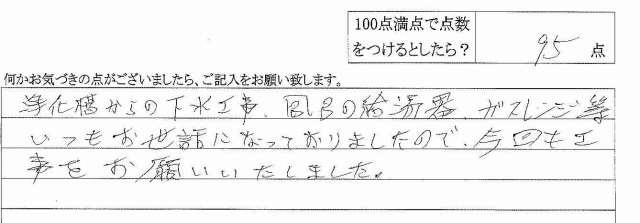 100点満点で点数
をつけるとしたら？ 95 点
何かお気づきの点がございましたら、ご記入をお願い致します。
浄化槽からの下水工事、風呂の給湯器、ガスレンジ等
いつもお世話になっておりましたので、今回も工
事をお願いいたしました。